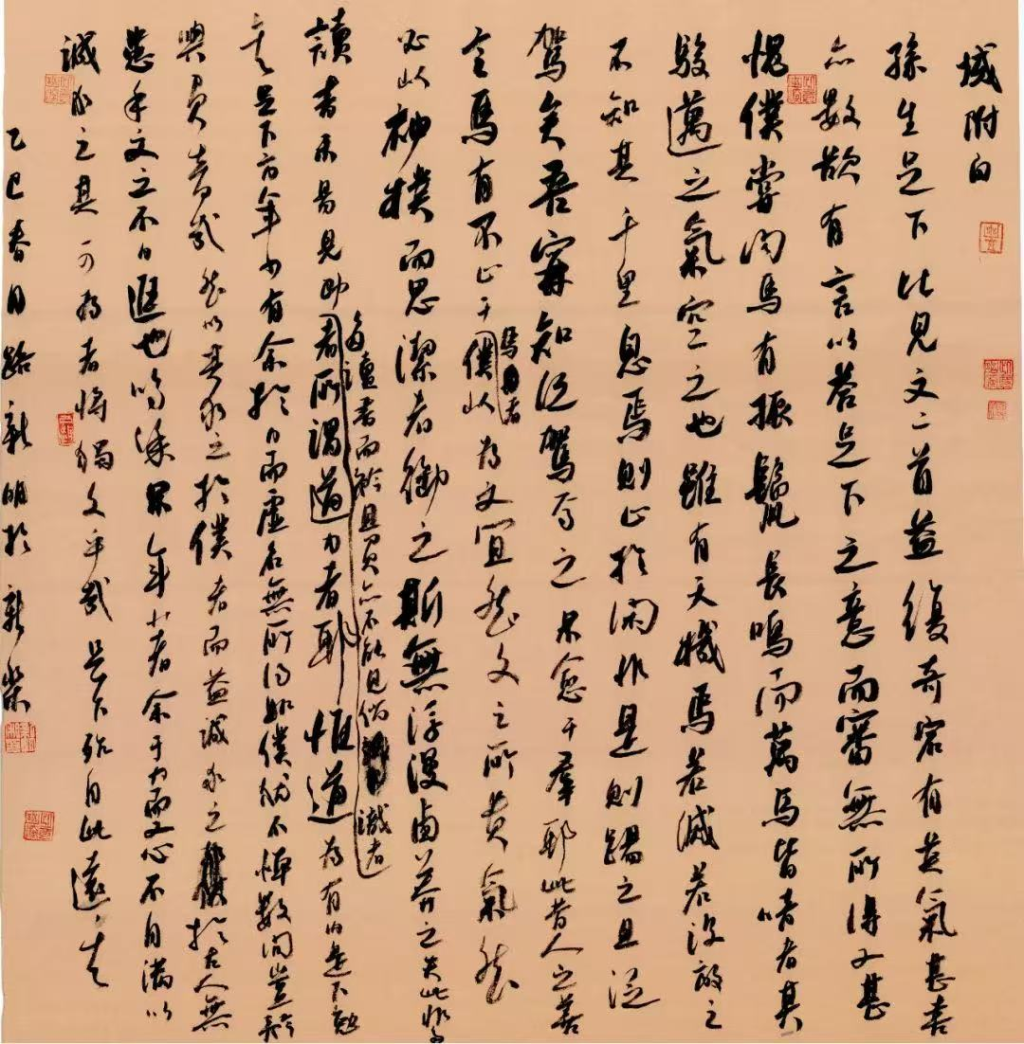 域附白
孫生足下比見文二首益復奇宕有英氣甚喜
亦數欲有言以答足下之意而審無所得又甚
愧僕嘗聞馬有振鬣長鳴而萬馬皆喑者其
駿邁之氣空之也雖有天機焉若滅若沒放之
不知其千里息焉則止於閑非是則踶之且泛
駕矣吾寧知泛駕焉之果愈于羣耶此昔人之善
言馬有不止于馬者僕以為文宜然文之所貴氣然
必以神樸而思潔者御之斯無浮漫鹵莽之失此非多
讀書未易見助讀書而矜且負亦不能見倘識者
者所謂道力者耶惟道為有力足下勉
矣足下方年少有余於力而虛名無所得如僕猶不憚數問豈矜
與負者哉然以其求之於僕者而益誠求之於古人無
患乎文之不日進也嗚呼果年少者余于力而又心不自滿以
誠求之其可為者將獨文乎哉足下殆自此遠矣
乙巳春月路新明於新